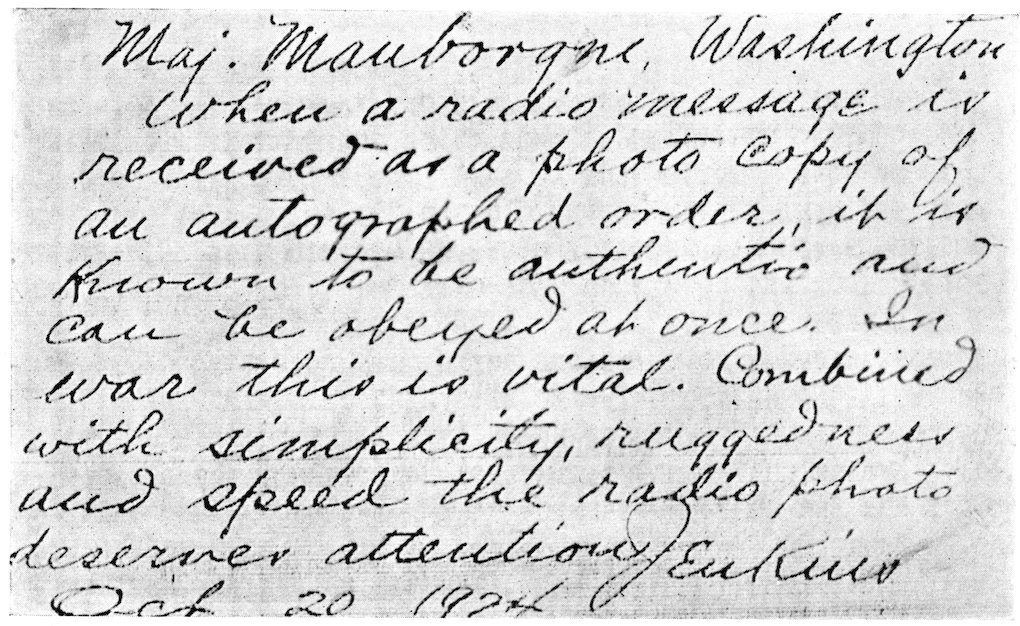 Maj. Mauborgne, Washington
When a radio message is
received as a photo copy of
an autographed order, it is
known to be authentic and
can be obeyed at once. In
war this is vital. Combined
with simplicity, ruggedness
and speed the radio photo
deserves attention Jenkins
Oct 20 1924